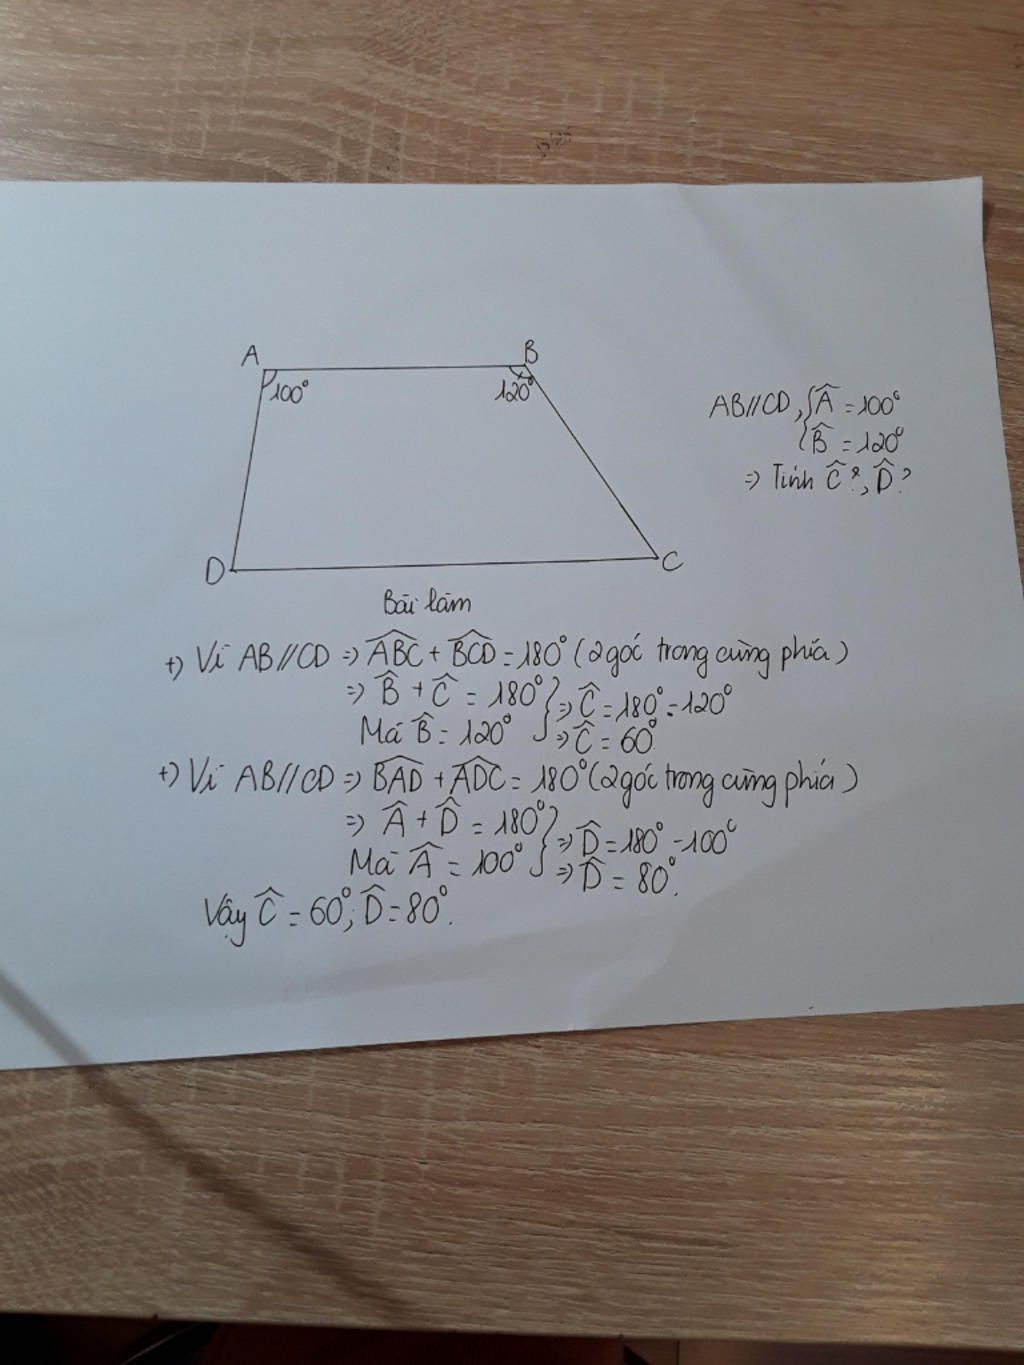 A
B
100°
120°
AB//CD, { Â = 100°
B̂ = 120°
=> Tính Ĉ?, D̂?
D
C
Bài làm
+) Vì AB//CD => ABC + BCD = 180° (2 góc trong cùng phía)
=> B̂ + Ĉ = 180° } => Ĉ = 180° - 120°
Mà B̂ = 120° } => Ĉ = 60°
+) Vì AB//CD => BAD + ADC = 180° (2 góc trong cùng phía)
=> Â + D̂ = 180° } => D̂ = 180° - 100°
Mà Â = 100° } => D̂ = 80°.
Vậy Ĉ = 60°; D̂ = 80°.